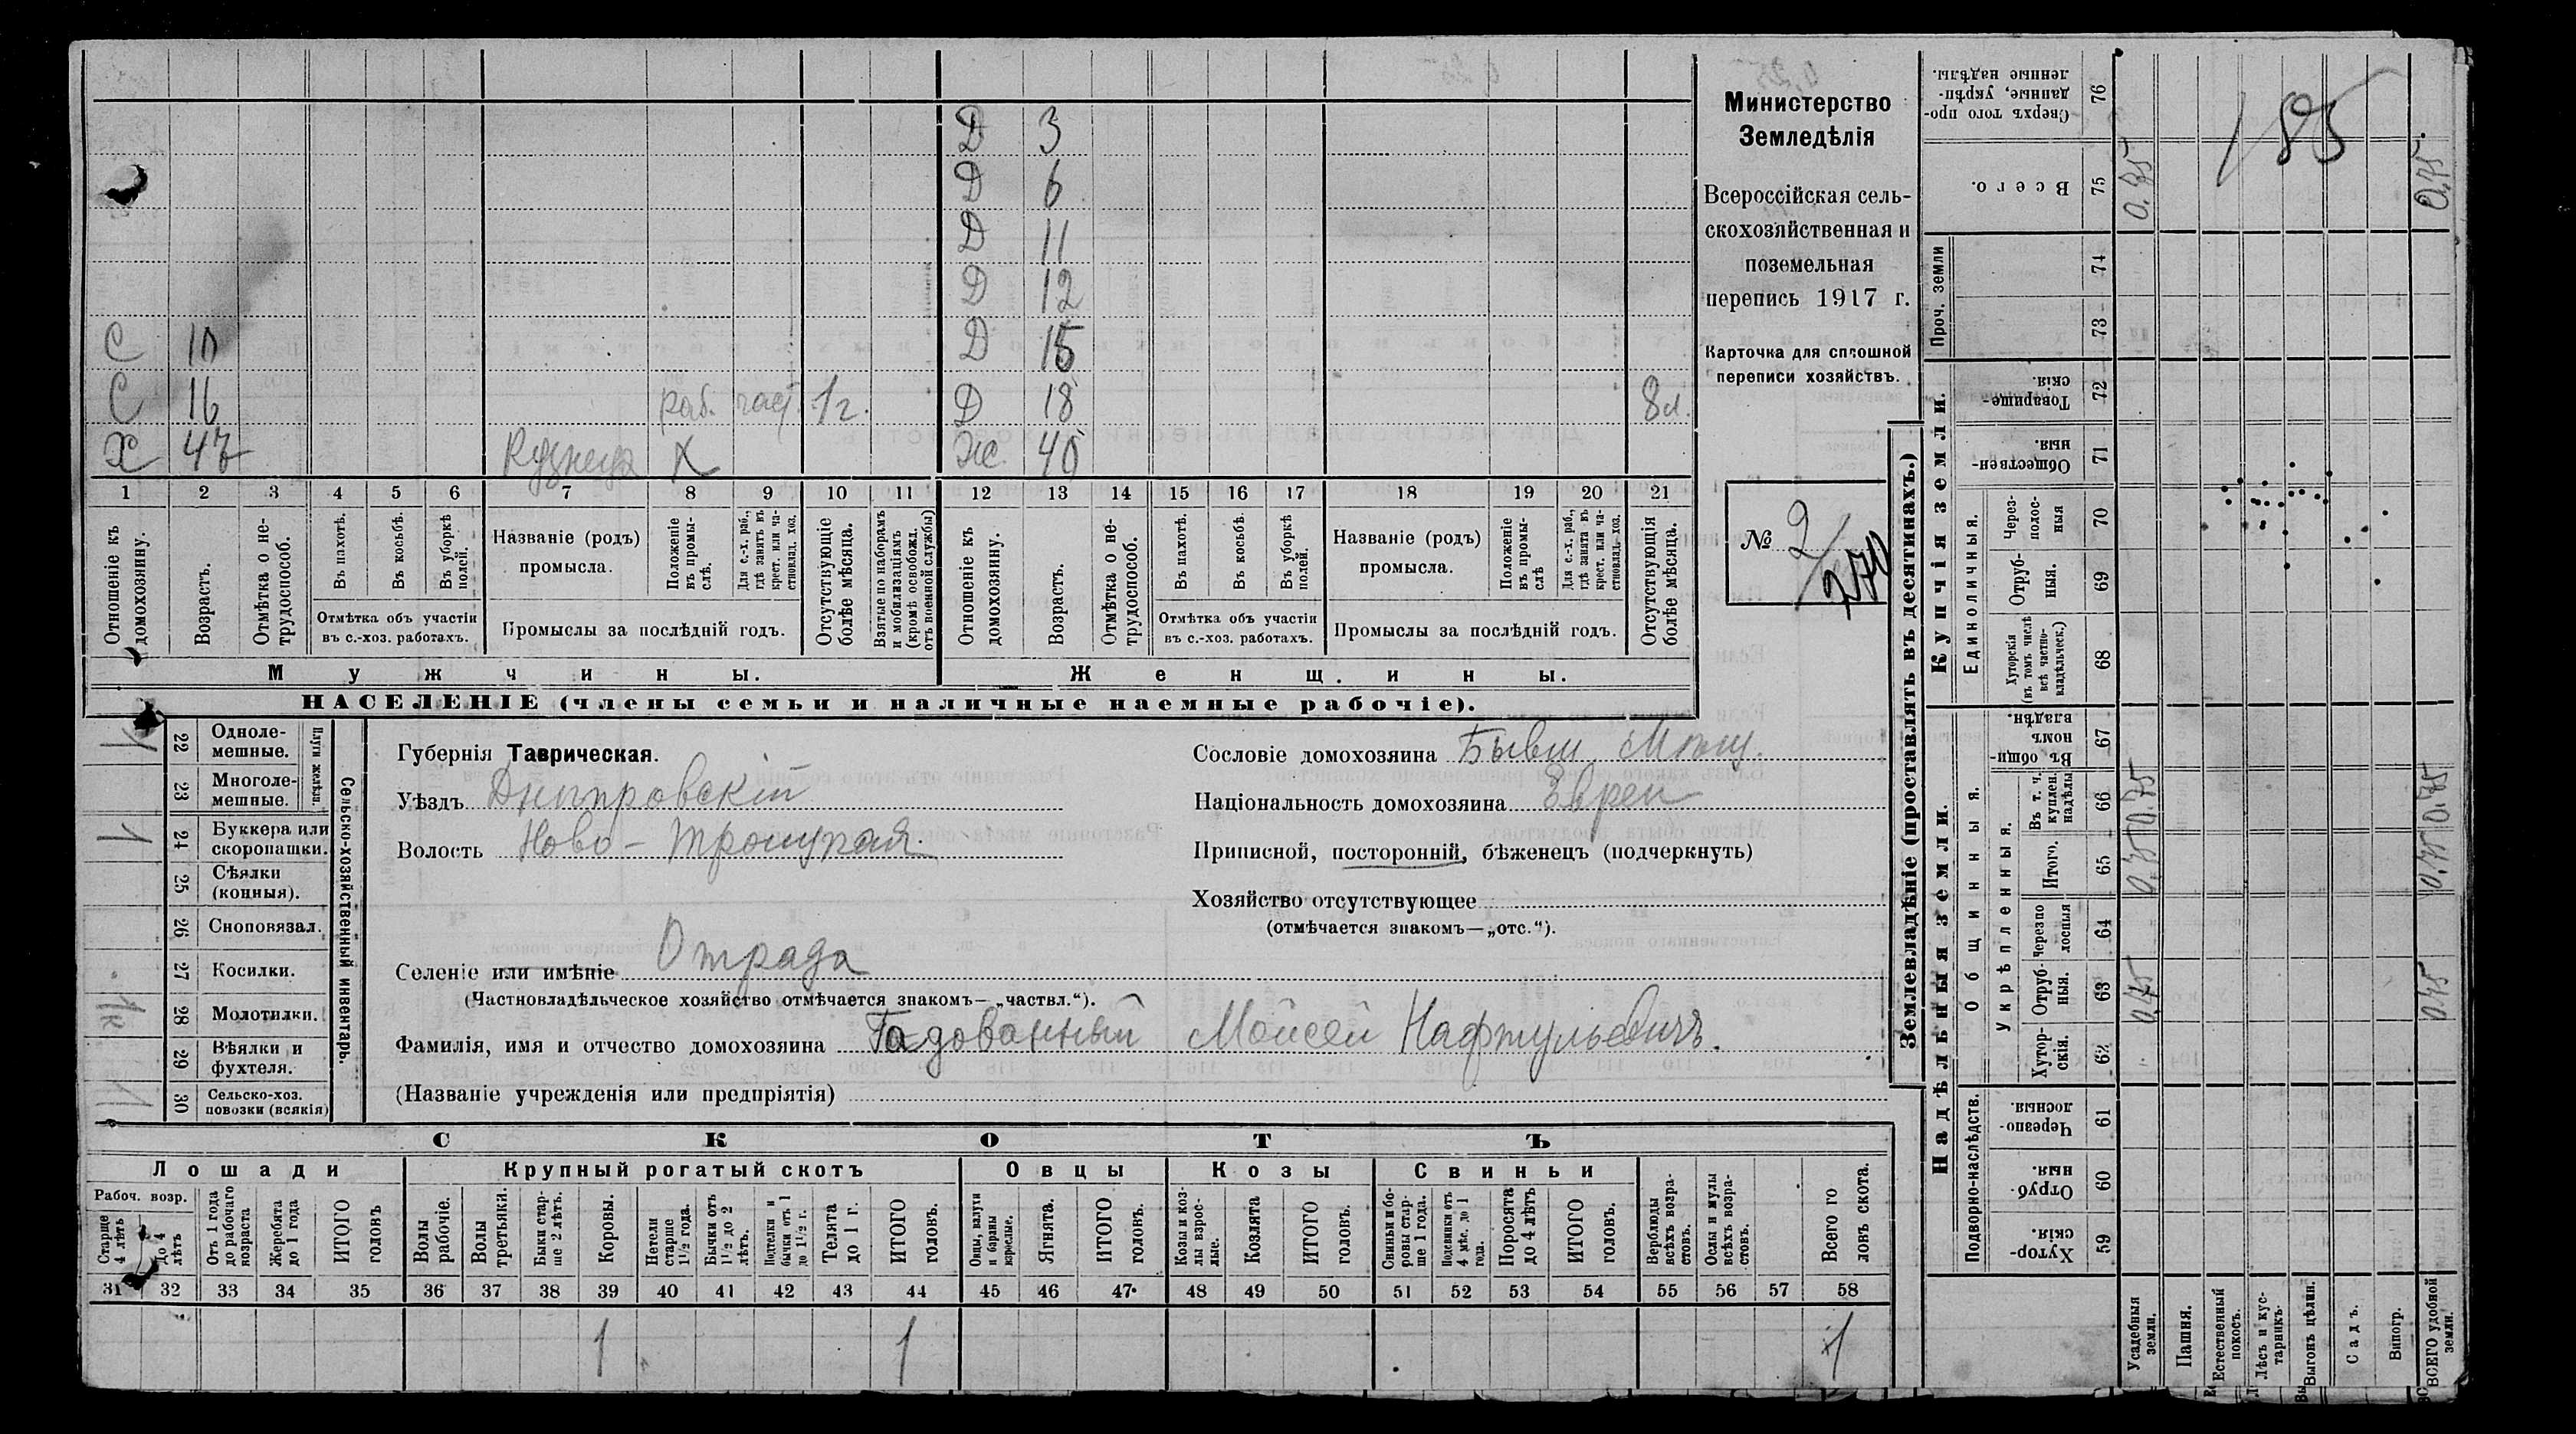 Д 3
Д 6
Д 11
Д 12
С 10 Д 15
С 16 раб. част. 1 г. Д 18 8 л.
Х 47 Кузнеца Х Ж 40
1 2 3 4 5 6 7 8 9 10 11 12 13 14 15 16 17 18 19 20 21
Отношеніе къ домохозяину.
Возрастъ.
Отмѣтка о нетрудоспособ.
Въ пахотѣ.
Въ косьбѣ.
Въ уборкѣ полей.
Отмѣтка объ участіи въ с.-хоз. работахъ.
Названіе (родъ) промысла.
Положеніе въ промыслѣ.
Для с.-х. раб., гдѣ занятъ въ крест. или частновлад. хоз.
Промыслы за послѣдній годъ.
Отсутствующіе болѣе мѣсяца.
Взятые по наборамъ и мобилизаціямъ (кромѣ освобожд. отъ военной службы)
Отношеніе къ домохозяину.
Возрастъ.
Отмѣтка о нетрудоспособ.
Въ пахотѣ.
Въ косьбѣ.
Въ уборкѣ полей.
Отмѣтка объ участіи въ с.-хоз. работахъ.
Названіе (родъ) промысла.
Положеніе въ промыслѣ
Для с.-х. раб., гдѣ занята въ крест. или частновлад. хоз.
Промыслы за послѣдній годъ.
Отсутствующія болѣе мѣсяца.
Мужчины. Женщины.
НАСЕЛЕНІЕ (члены семьи и наличные наемные рабочіе).
Министерство
Земледѣлія
Всероссійская сель-
скохозяйственная и
поземельная
перепись 1917 г.
Карточка для сплошной
переписи хозяйствъ.
№ 2/270
1 22 Одноле-мешные.
23 Многоле-мешные.
Плуги желѣзн.
1 24 Буккера или скоропашки.
25 Сѣялки (конныя).
26 Сноповязал.
27 Косилки.
1к 28 Молотилки.
29 Вѣялки и фухтеля.
1 30 Сельско-хоз. повозки (всякія)
Сельско-хозяйственный инвентарь.
Губернія Таврическая.
Уѣздъ Днѣпровскій
Волость Ново-Троицкая
Селеніе или имѣніе Отрада
(Частновладѣльческое хозяйство отмѣчается знакомъ—„частвл.“).
Фамилія, имя и отчество домохозяина Гадованный Мойсей Нафтульевичъ.
(Названіе учрежденія или предпріятія)
Сословіе домохозяина Бывш. Мѣщ.
Національность домохозяина Еврей
Приписной, посторонній, бѣженецъ (подчеркнуть)
Хозяйство отсутствующее
(отмѣчается знакомъ—„отс.“).
СКОТЪ
Лошади Крупный рогатый скотъ Овцы Козы Свиньи
Рабоч. возр.
Старше 4 лѣтъ
До 4 лѣтъ
Отъ 1 года до рабочаго возраста
Жеребята до 1 года
ИТОГО головъ
Волы рабочіе.
Волы третьяки.
Быки старше 2 лѣтъ.
Коровы.
Нетели старше 1½ года.
Бычки отъ 1½ до 2 лѣтъ.
Подтелки и бычки отъ 1 до 1½ г.
Телята до 1 г.
ИТОГО головъ.
Овцы, валухи и бараны взрослые.
Ягнята.
ИТОГО головъ.
Козы и козлы взрослые.
Козлята
ИТОГО головъ.
Свиньи и боровы старше 1 года.
Подсвинки отъ 4 мѣс. до 1 года.
Поросята до 4 лѣтъ
ИТОГО головъ.
Верблюды всѣхъ возрастовъ.
Ослы и мулы всѣхъ возрастовъ.
Всего головъ скота.
31 32 33 34 35 36 37 38 39 40 41 42 43 44 45 46 47 48 49 50 51 52 53 54 55 56 57 58
1 1 1
Землевладѣніе (проставлять въ десятинахъ.)
Купчія земли.
Надѣльныя земли.
Проч. земли
Единоличныя.
Общинныя.
Укрѣпленныя.
Подворно-наслѣдств.
Сверхъ того проданные, укрѣпленные надѣлы. 76
Всего. 75
74
73
Товарищескія. 72
Общественныя. 71
Черезполосныя 70
Отрубныя. 69
Хуторскія (въ томъ числѣ всѣ частновладѣльческ.) 68
Въ общинномъ владѣн. 67
Въ т. ч. куплен. надѣлы 66
Итого. 65
Черезполосныя 64
Отрубныя. 63
Хуторскія. 62
Черезполосныя. 61
Отрубныя. 60
Хуторскія. 59
Усадебныя земли.
Пашня.
Естественный покосъ.
Лѣсъ и кустарникъ.
Выгонъ цѣлин.
Садъ.
Виногр.
ВСЕГО удобной земли.
185
0.75
0.75
0.75
0.75